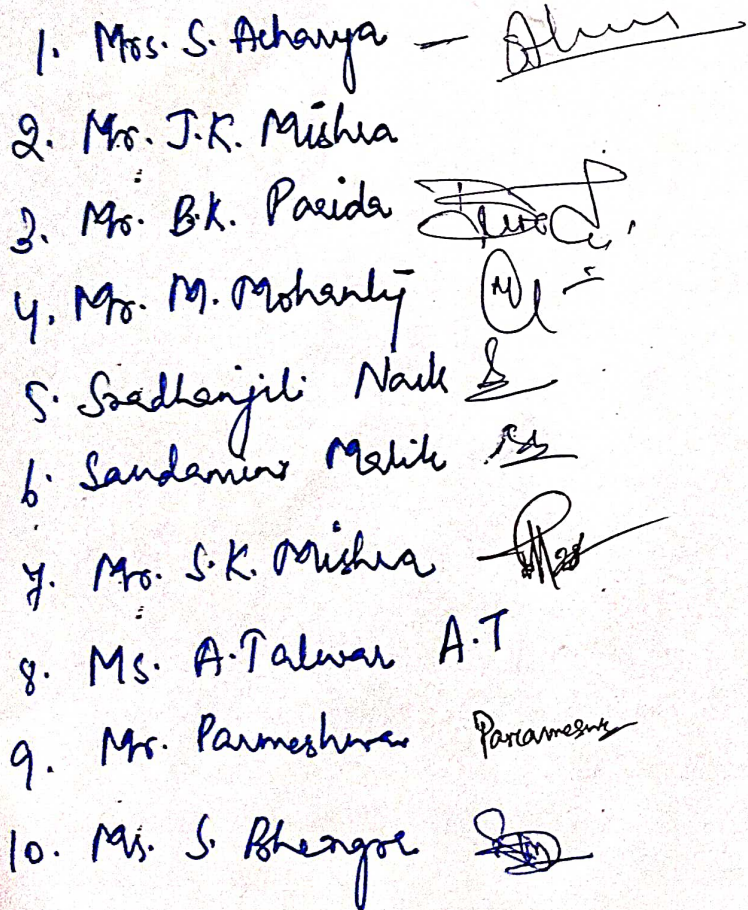 1. Mrs. S. Acharya -
2. Mr. J.K. Mishra
3. Mr. B.K. Parida
4. Mr. M. Mohanty
5. Sradhanjili Naik
6. Saudamini Malik
7. Mr. S.K. Mishra
8. Ms. A. Talwar A.T
9. Mr. Parmeshwar
10. Ms. S. Bhengre